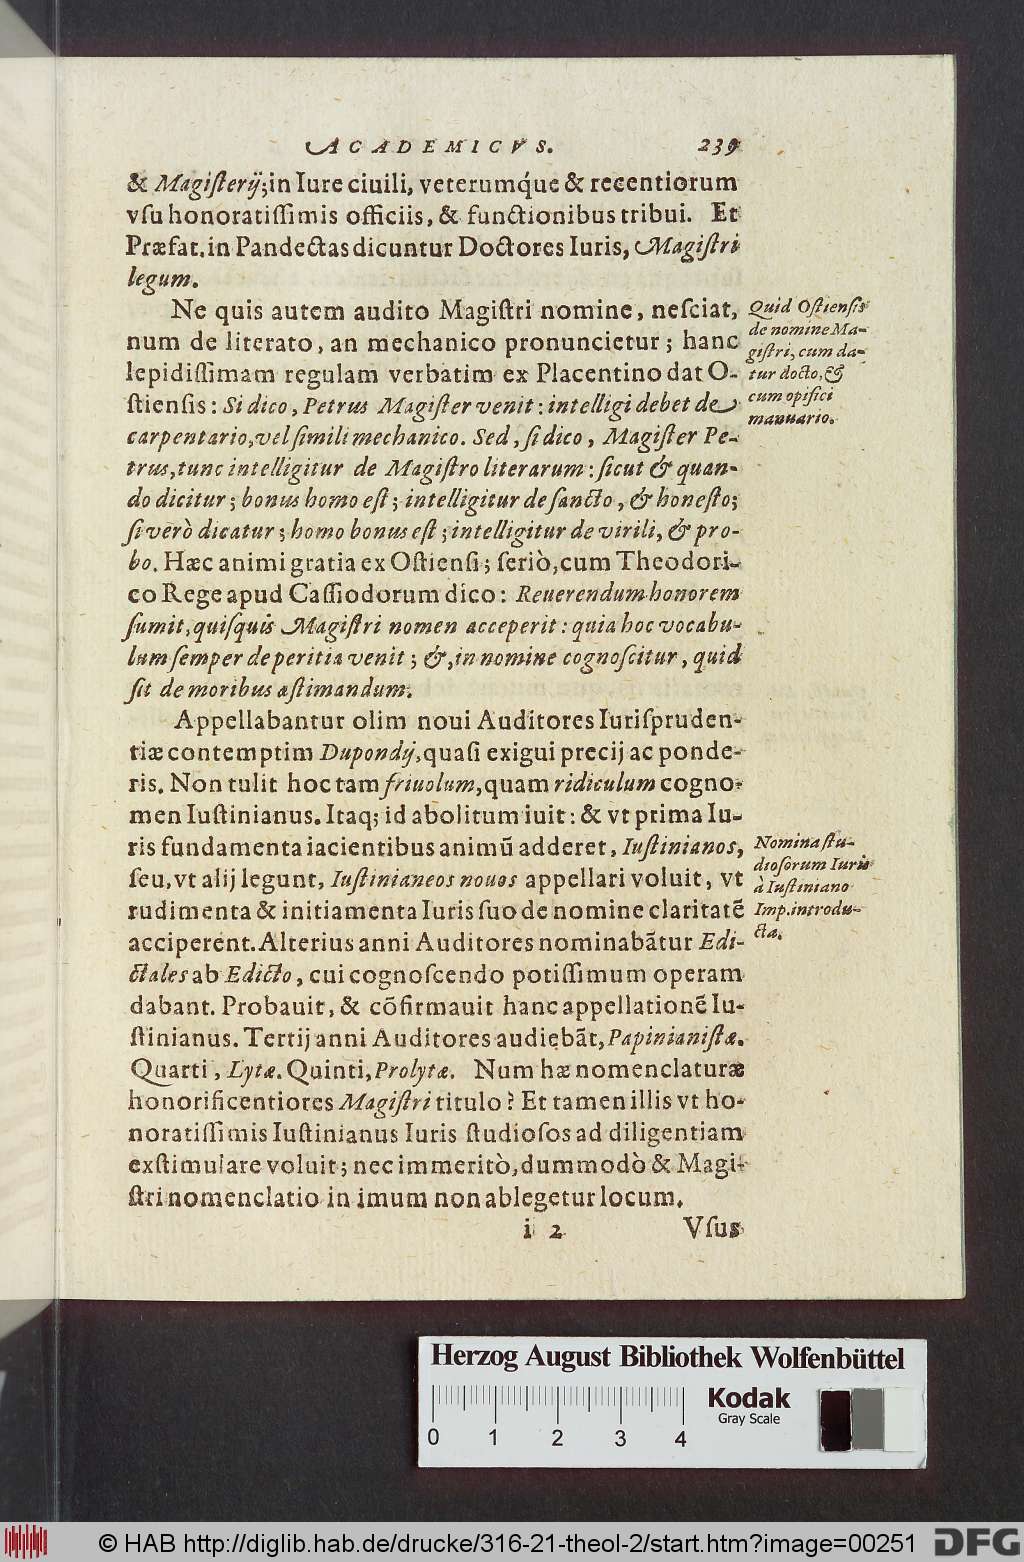 ACADEMICVS. 239
& Magiſterij; in Iure ciuili, veterumq́ue & recentiorum
vſu honoratiſſimis officiis, & functionibus tribui. Et
Præfat. in Pandectas dicuntur Doctores Iuris, Magiſtri
legum.
Ne quis autem audito Magiſtri nomine, neſciat,
num de literato, an mechanico pronuncietur; hanc
lepidiſſimam regulam verbatim ex Placentino dat O-
ſtienſis: Si dico, Petrus Magiſter venit: intelligi debet de
carpentario, vel ſimili mechanico. Sed, ſi dico, Magiſter Pe-
trus, tunc intelligitur de Magiſtro literarum: ſicut & quan-
do dicitur; bonus homo eſt; intelligitur de ſancto, & honeſto;
ſi verò dicatur; homo bonus eſt; intelligitur de virili, & pro-
bo. Hæc animi gratia ex Oſtienſi; ſeriò, cum Theodori-
co Rege apud Caſſiodorum dico: Reuerendum honorem
ſumit, quiſquis Magiſtri nomen acceperit: quia hoc vocabu-
lum ſemper de peritia venit; &, in nomine cognoſcitur, quid
ſit de moribus æſtimandum.
Quid Oſtienſis
de nomine Ma-
giſtri, cum da-
tur docto, &
cum opifici
manuario.
Appellabantur olim noui Auditores Iuriſpruden-
tiæ contemptim Dupondij, quaſi exigui precij ac ponde-
ris. Non tulit hoc tam friuolum, quam ridiculum cogno-
men Iuſtinianus. Itaq; id abolitum iuit: & vt prima Iu-
ris fundamenta iacientibus animũ adderet, Iuſtinianos,
ſeu, vt alij legunt, Iuſtinianeos nouos appellari voluit, vt
rudimenta & initiamenta Iuris ſuo de nomine claritatẽ
acciperent. Alterius anni Auditores nominabãtur Edi-
ctales ab Edicto, cui cognoſcendo potiſſimum operam
dabant. Probauit, & cõfirmauit hanc appellationẽ Iu-
ſtinianus. Tertij anni Auditores audiebãt, Papinianiſtæ.
Quarti, Lytæ. Quinti, Prolytæ. Num hæ nomenclaturæ
honorificentiores Magiſtri titulo? Et tamen illis vt ho-
noratiſſimis Iuſtinianus Iuris ſtudioſos ad diligentiam
exſtimulare voluit; nec immeritò, dummodò & Magi-
ſtri nomenclatio in imum non ablegetur locum.
Nomina ſtu-
dioſorum Iuris
à Iuſtiniano
Imp. introdu-
cta.
i 2 Vſus
Herzog August Bibliothek Wolfenbüttel
Kodak
Gray Scale
0 1 2 3 4
© HAB http://diglib.hab.de/drucke/316-21-theol-2/start.htm?image=00251
DFG